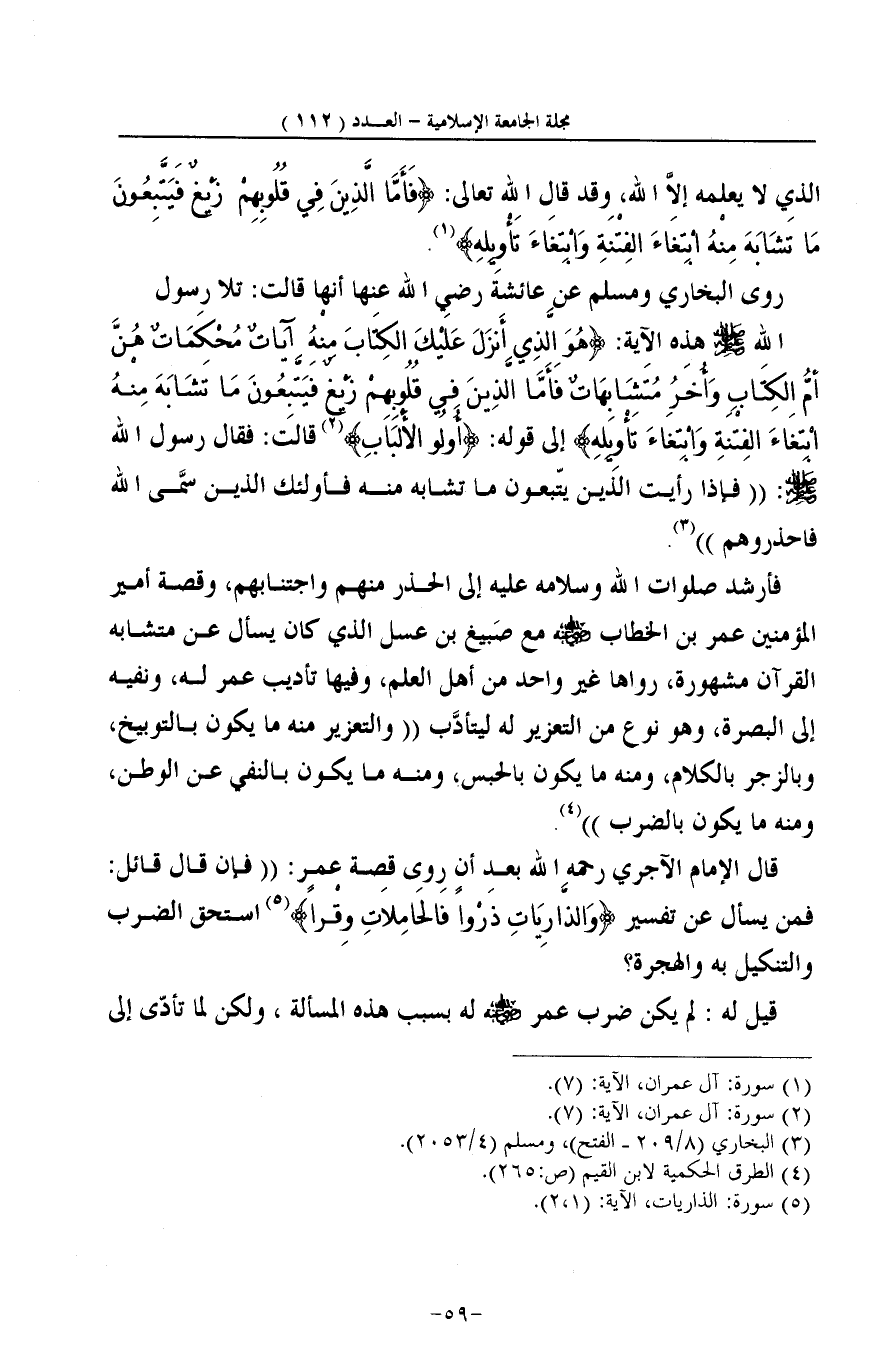 مجلة الجامعة الإسلامية – العـــدد ( ١١٢ )
الذي لا يعلمه إلاَّ الله، وقد قال الله تعالى: ﴿فَأَمَّا الَّذِينَ فِي قُلُوبِهِمْ زَيْغٌ فَيَتَّبِعُونَ
مَا تَشَابَهَ مِنْهُ ابْتِغَاءَ الفِتْنَةِ وَابْتِغَاءَ تَأْوِيلِهِ﴾(١).
روى البخاري ومسلم عن عائشة رضي الله عنها أنها قالت: تلا رسول
الله ﷺ هذه الآية: ﴿هُوَ الَّذِي أَنزَلَ عَلَيْكَ الكِتَابَ مِنْهُ آيَاتٌ مُحْكَمَاتٌ هُنَّ
أُمُّ الكِتَابِ وَأُخَرُ مُتَشَابِهَاتٌ فَأَمَّا الَّذِينَ فِي قُلُوبِهِمْ زَيْغٌ فَيَتَّبِعُونَ مَا تَشَابَهَ مِنْهُ
ابْتِغَاءَ الفِتْنَةِ وَابْتِغَاءَ تَأْوِيلِهِ﴾ إلى قوله: ﴿أُولُو الأَلْبَابِ﴾(٢) قالت: فقال رسول الله
ﷺ: (( فـإذا رأيـت الذيـن يتّبعـون مـا تشـابه منـه فـأولئك الذيـن سمَّـى الله
فاحذروهم ))(٣).
فأرشد صلوات الله وسلامه عليه إلى الحـذر منهـم واجتنـابهم، وقصـة أمـير
المؤمنين عمر بن الخطاب رضي الله عنه مع صَبيغ بن عسل الذي كان يسأل عـن متشـابه
القرآن مشهورة، رواها غير واحد من أهل العلم، وفيها تأديب عمر لـه، ونفيـه
إلى البصرة، وهو نوع من التعزير له ليتأدَّب (( والتعزير منه ما يكون بـالتوبيخ،
وبالزجر بالكلام، ومنه ما يكون بالحبس، ومنـه مـا يكـون بـالنفي عـن الوطـن،
ومنه ما يكون بالضرب ))(٤).
قال الإمام الآجري رحمه الله بعـد أن روى قصـة عمـر: (( فـإن قـال قـائل:
فمن يسأل عن تفسير ﴿وَالذَّارِيَاتِ ذَرْواً فَالحَامِلاَتِ وِقْراً﴾(٥) استحق الضرب
والتنكيل به والهجرة؟
قيل له : لم يكن ضرب عمر رضي الله عنه له بسبب هذه المسألة ، ولكن لما تأدّى إلى
(١) سورة: آل عمران، الآية: (٧).
(٢) سورة: آل عمران، الآية: (٧).
(٣) البخاري (٢٠٩/٨ ـ الفتح)، ومسلم (٢٠٥٣/٤).
(٤) الطرق الحكمية لابن القيم (ص:٢٦٥).
(٥) سورة: الذاريات، الآية: (٢،١).
-٥٩-